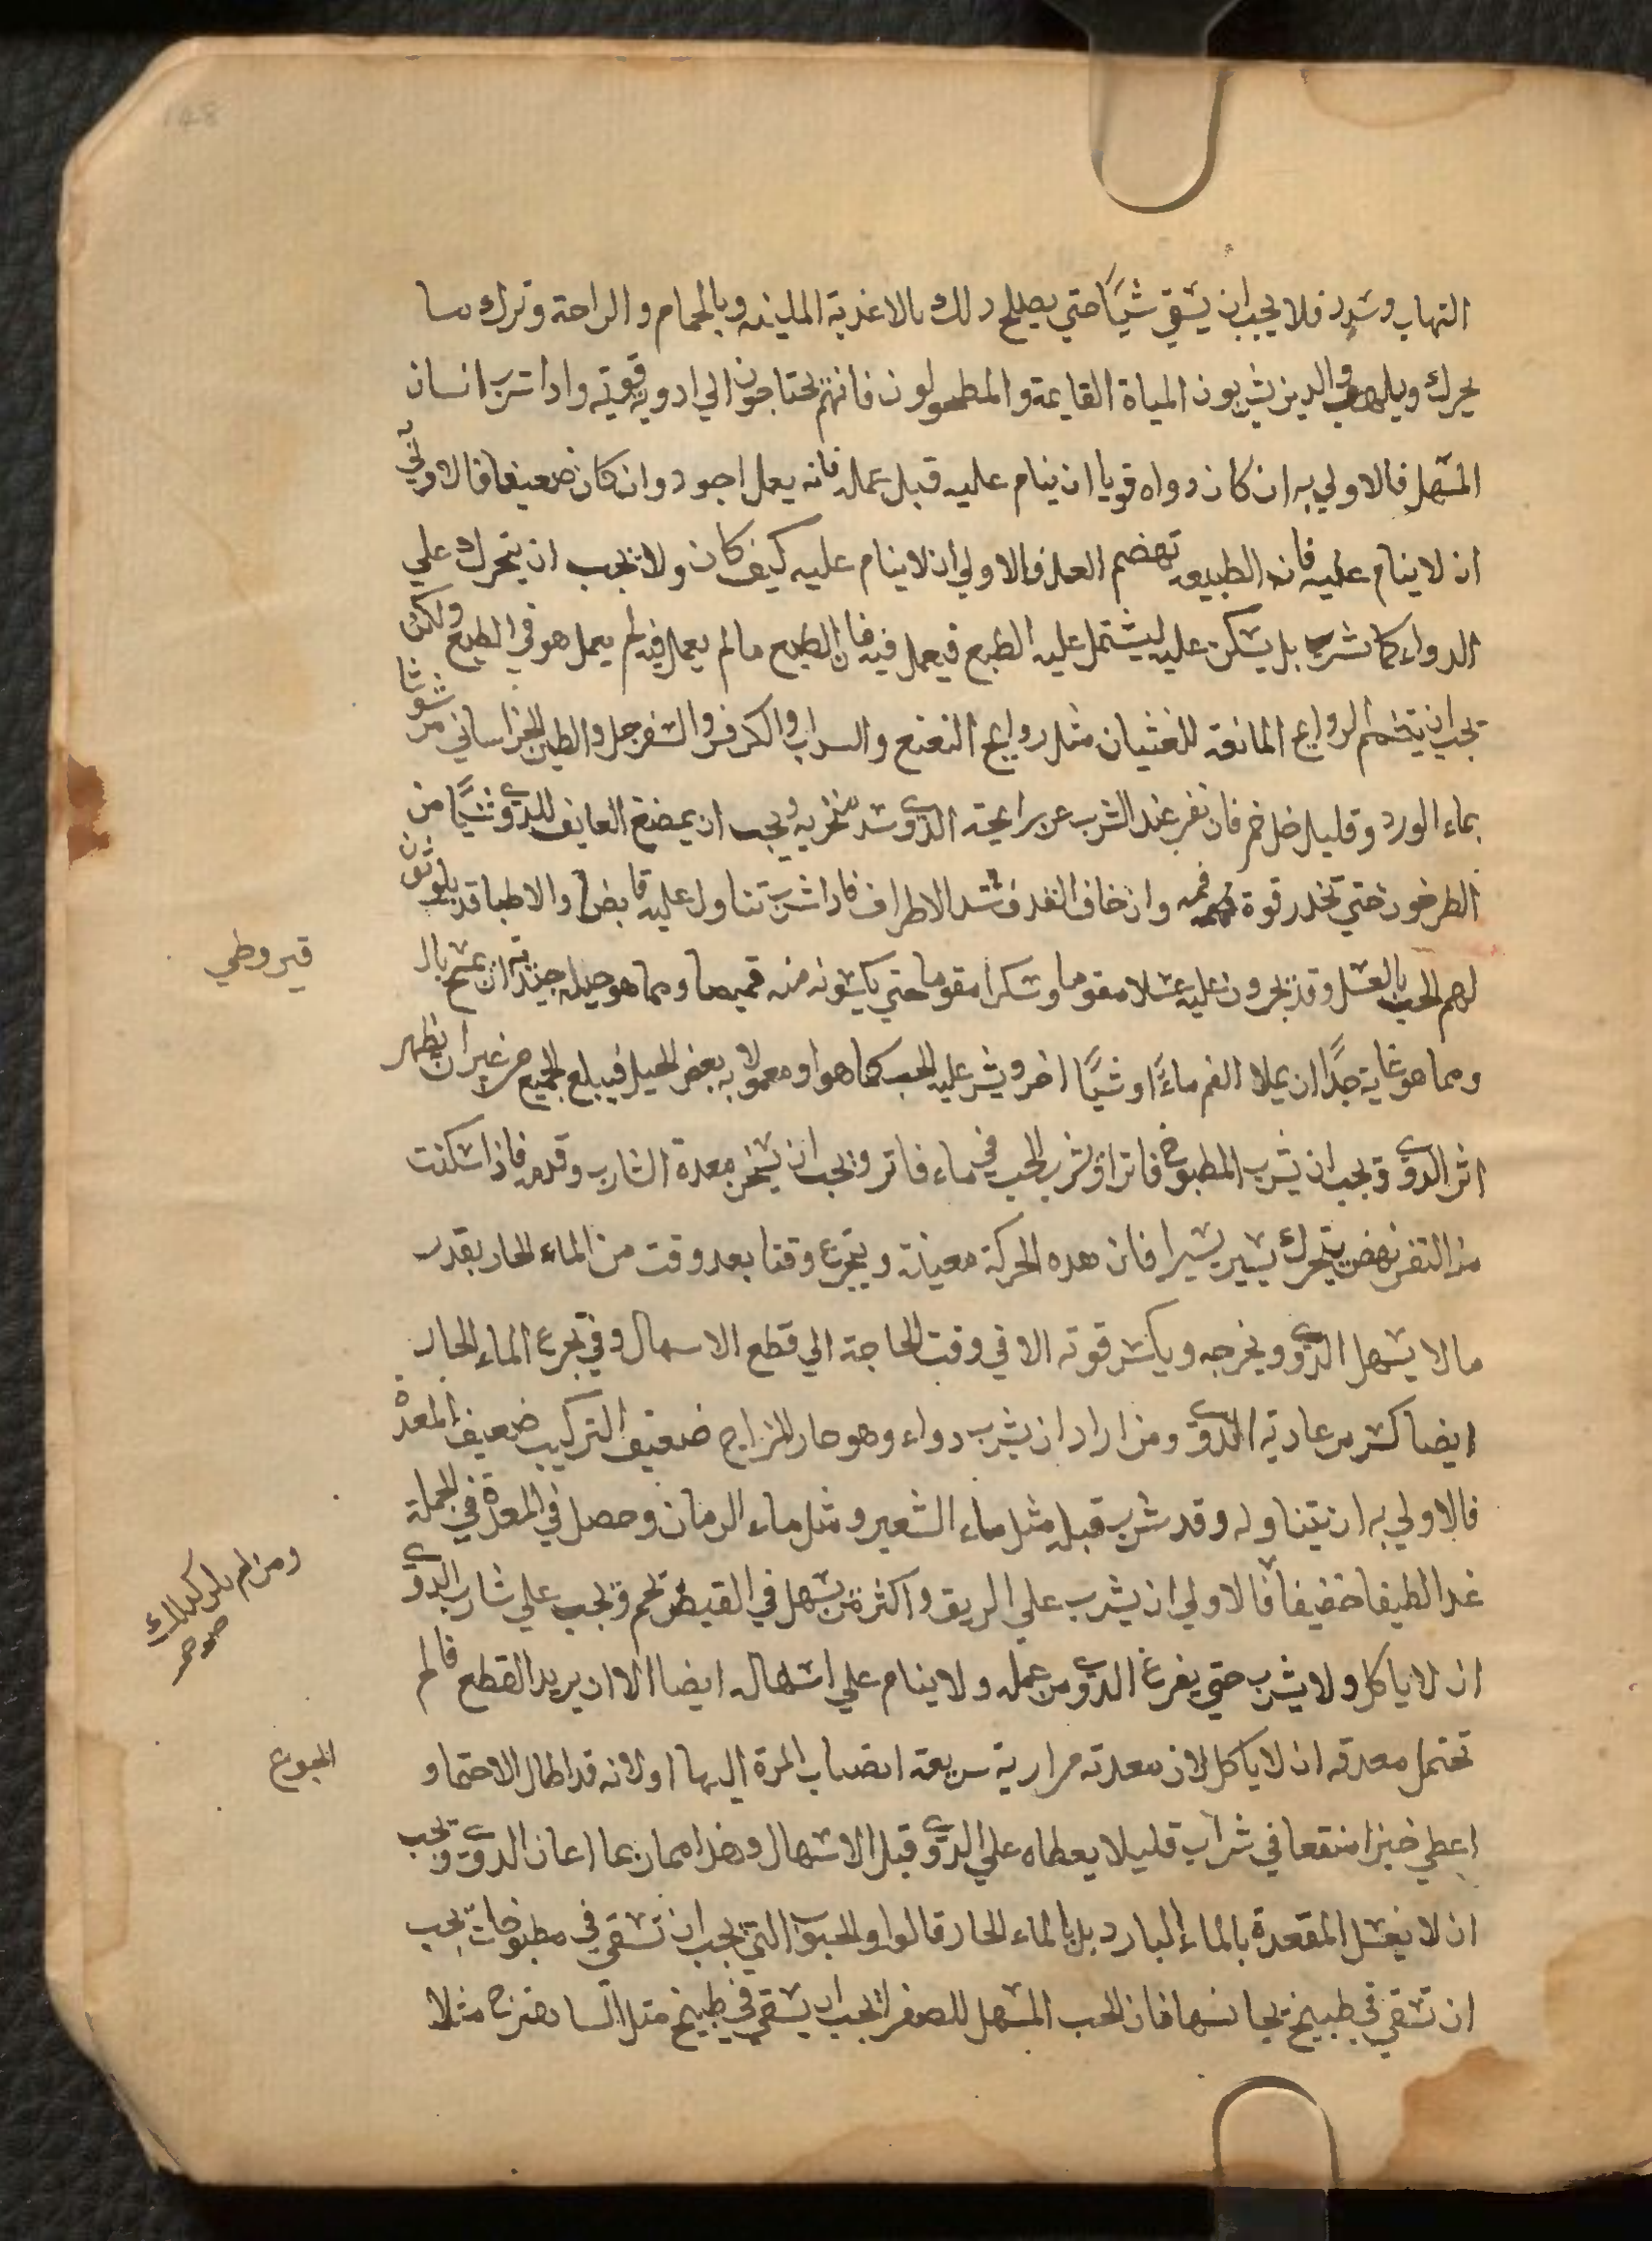 148
التهاب وسدد فلا يجب ان يسقي شيًا حتي يصلح دلك بالاغذية الملينه وبالحمام والراحة وترك ما
يحرك ويلهب والدين يشربون المياة القايمة والمطحولون فانهم يحتاجون الي ادويه قوية وادا شرب انسان
المسهل فالاولي به ان كان دواه قويا ان ينام عليه قبل عمله فانه يعمل اجود وان كان ضعيفا فالاولي
ان لا ينام عليه فانه الطبيعه تهضم العمل فالاولي ان لا ينام عليه كيف كان ولا يجب ان يتحرك علي
الدواء كما شرب بل يسكن عليه ليشتمل عليه الطبع فيعمل فيه فان الطبع مالم يعمل فيه لم يعمل هو في الطبع ولكن
يجب ان يتشمم الروايح المانعة للغثيان مثل روايح النعنع والسداب والكرفس والسفرجل والطين الخراساني مرشوشا
بماء الورد وقليل خل خمر فان نفر عند الشرب عن رايحة الدوي سد منخريه ويجب ان يمضغ العايف للدوي شيًا من
الطرخون حتي تخدر قوة فمه وان خاف القدف شد الاطراف فادا شرب تناول عليه قابضا والاطبا قد يلوثون
لهم الحب بالعسل وقد يجرون عليه عسلا مقوما وسكرا مقوما حتي يكسونه منه قميصا ومما هو حيله جيدة ان يمسح بال
قيروطي
ومما هو غاية جدًا ان يملا الفم ماءً او شيًا اخر ويشرب عليه الحب كما هو او معمولا به بعض الحيل فيبلع الجميع من غير ان يظهر
اثر الدوي ويجب ان يشرب المطبوخ فاترا ويشرب الحب في ماء فاتر ويجب ان يسخن معدة الشارب وقدمه فاذا سكنت
منه النفس نهض يتحرك يسير يسيرا فان هده الحركة معينة ويتجرع وقتا بعد وقت من الماء الحار بقدر
ما لا يسهل الدوي ويخرجه ويكسر قوته الا في وقت الحاجة الي قطع الاسهال وفي تجرع الماء الحار
ايضا كسر من عادية الدوي ومن اراد ان يشرب دواء وهو حار المزاج ضعيف التركيب ضعيف المعدة
فالاولي به ان يتناوله وقد شرب قبله مثل ماء الشعير ومثل ماء الرمان وحصل في المعدة في الجملة
غدا لطيفا خفيفا فالاولي ان يشرب علي الريق واكثر من يسهل في القيض يحم ويجب علي شارب الدوي
ومن لم يكن كدلك صح
ان لا ياكل ولا يشرب حتي يفرغ الدوي من عمله ولا ينام علي اسهاله ايضا الا ان يريد القطع فالم
تحتمل معدته ان لا ياكل لان معدته مرارية سريعة انصباب المرة اليها او لانه قد اطال الاحتما و
الجوع
اعطي خبزا منقعا في شراب قليلا يعطاه علي الدوي قبل الاسهال وهذا مما ربما اعان الدوي ويجب
ان لا يغسل المقعدة بالماء البارد بل بالماء الحار قالوا والحبوب التي يجب ان تسقي في مطبوخات يجب
ان تسقي في طبيخ يجانسها فان الحب المسهل للصفرا يجب ان يسقي في طبيخ مثل الساهترج مثلا